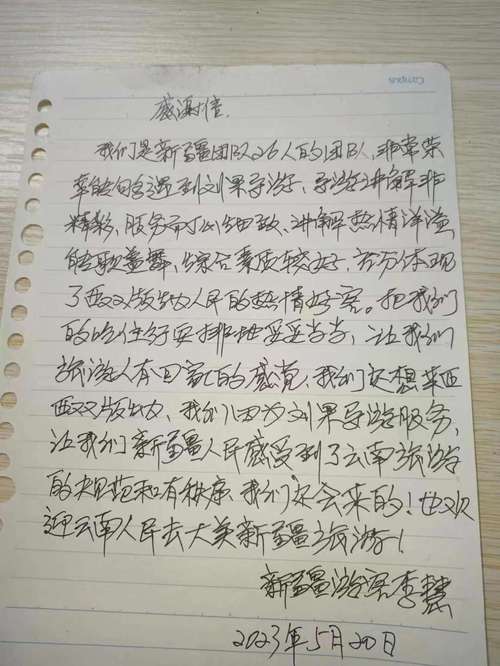 Campus
感谢信
我们是新疆团队26人的团队,非常荣
幸能够遇到刘果导游,导游讲解非
精彩,服务耐心细致、讲解热情洋溢
能歌善舞、综合素质较好,充分体现
了西双版纳人民的热情好客。把我们
的吃住行安排地妥妥当当,让我们
旅游人有回家的感觉,我们还想来西
西双版纳、我们因为刘果导游服务,
让我们新疆人民感受到了云南旅游
的规范和有秩序.我们还会来的!也欢
迎云南人民去大美新疆旅游!
新疆游客李慧
2023年5月20日